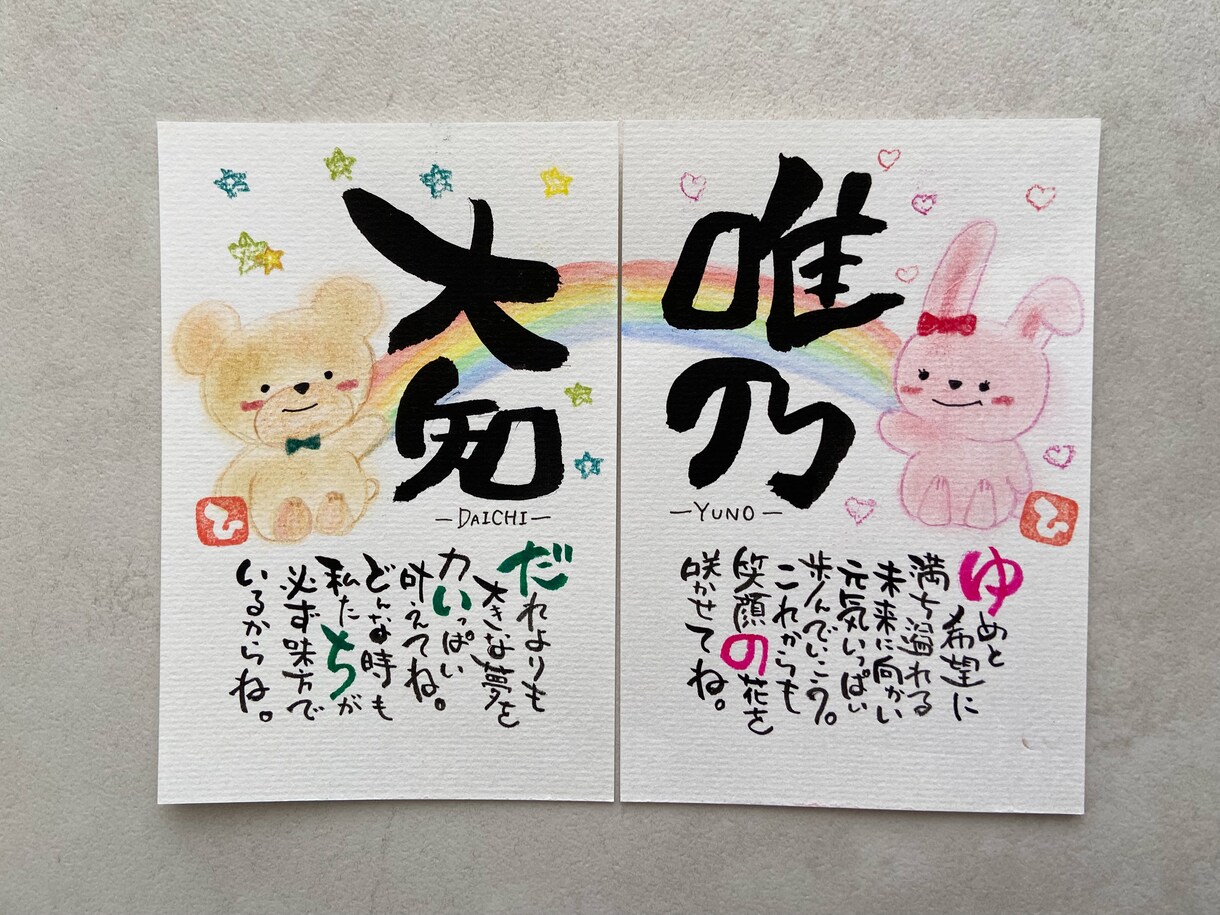 唯乃
-YUNO-
ゆめと
希望に
満ち溢れる
未来に向かい
元気いっぱい
歩んでいこう。
これからも
笑顔の花を
咲かせてね。
ひ
大知
-DAICHI-
だれよりも
大きな夢を
力いっぱい
叶えてね。
どんな時も
私たちが
必ず味方で
いるからね。
ひ